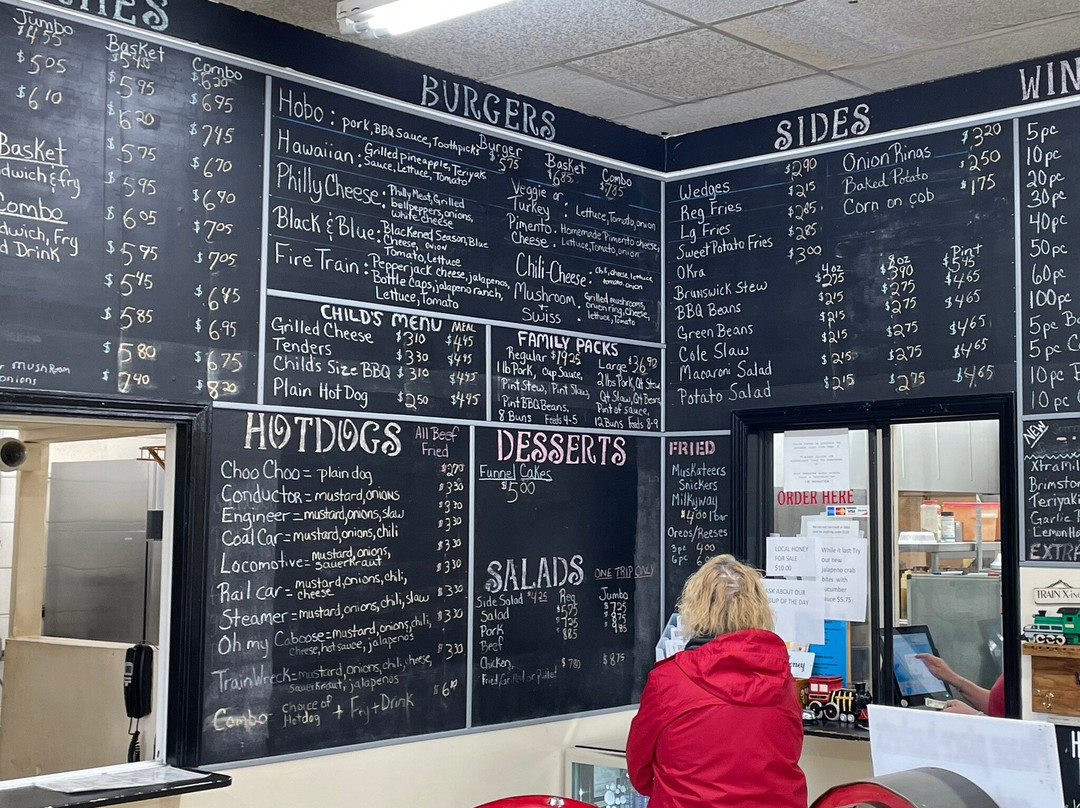 CHES
Jumbo
Basket
Combo
$ 505
$ 610
$ 595
$ 695
$ 620
$ 745
$ 575
$ 670
$ 595
$ 690
$ 605
$ 705
$ 595
$ 705
$ 545
$ 645
$ 585
$ 695
$ 580
$ 675
$ 740
$ 820
Basket
Combo
BURGERS
Burger $575
Basket $685
Combo $785
Hobo: pork, BBQ Sauce, Toothpicks
Hawaiian: Grilled Pineapple, Teriyaki
Sauce, Lettuce, Tomato
Philly Cheese: Philly Meat, Grilled
bell peppers, onions,
white cheese
Black & Blue: Blackened Season, Blue
Cheese, onion
Tomato, Lettuce
Fire Train: Pepper jack cheese, jalapenos,
Bottle caps, jalapeno ranch,
Lettuce, Tomato
Veggie or
Turkey : Lettuce, Tomato, onion
Pimento Cheese: Homemade Pimento cheese,
Lettuce, Tomato, onion
Chili-Cheese: chili, cheese, lettuce
tomato, onion
Mushroom Swiss : Grilled mushrooms,
onion ring, cheese,
lettuce, Tomato
CHILD'S MENU MEAL
Grilled Cheese $310 $445
Tenders $330 $445
Childs Size BBQ $310 $445
Plain Hot Dog $250 $445
FAMILY PACKS
Regular $1925
1 lb Pork, Cup Sauce,
Pint Stew, Pint Slaw
Pint BBQ Beans,
8 Buns Feeds 4-5
Large $3690
2 lbs Pork, Qt Stew
Qt Slaw, Qt Beans
Pint of sauce,
12 Buns Feeds 8-9
SIDES
Wedges $290
Reg Fries $215
Lg Fries $265
Sweet Potato Fries $285
Okra $300
Onion Rings $320
Baked Potato $250
Corn on cob $175
4oz
8oz
Pint
Brunswick Stew $225 $390 $545
BBQ Beans $215 $275 $465
Green Beans $215 $275 $465
Cole Slaw $215 $275 $465
Macaroni Salad $215 $275 $465
Potato Salad $215 $275 $465
WIN
5pc
10pc
20pc
30pc
40pc
50pc
60pc
100pc
HOTDOGS
All Beef
Fried
Choo Choo = plain dog $270
Conductor = mustard, onions $330
Engineer = mustard, onions, slaw $330
Coal Car = mustard, onions, chili $330
Locomotive = mustard, onions,
sauerkraut $330
Rail car = mustard, onions, chili,
cheese $330
Steamer = mustard, onions, chili, slaw $330
Oh my Caboose = mustard, onions, chili,
Cheese, hot sauce, jalapenos $330
Train Wreck = mustard, onions, chili, cheese,
sauerkraut, jalapenos
Combo - choice of
Hotdog + Fry + Drink
DESSERTS
Funnel Cakes
$5.00
SALADS ONE TRIP ONLY
Side Salad $4.25
Reg
Jumbo
Salad $575 $725
Pork $725 $875
Beef $885 $985
Chicken $780 $875
Fried, Grilled or pulled
FRIED
Muskateers
Snickers
Milkyway
$400 1 bar
Oreos/Reeses
3pc 400
6pc
ORDER HERE
LOCAL HONEY
FOR SALE
$10.00
ASK ABOUT OUR
SOUP OF THE DAY
While it last Try
our new
jalapeno crab
bites with
cucumber
sauce $5.75
NEW
Brimstone
Teriyaki
EXTRA
TRAIN X-ING